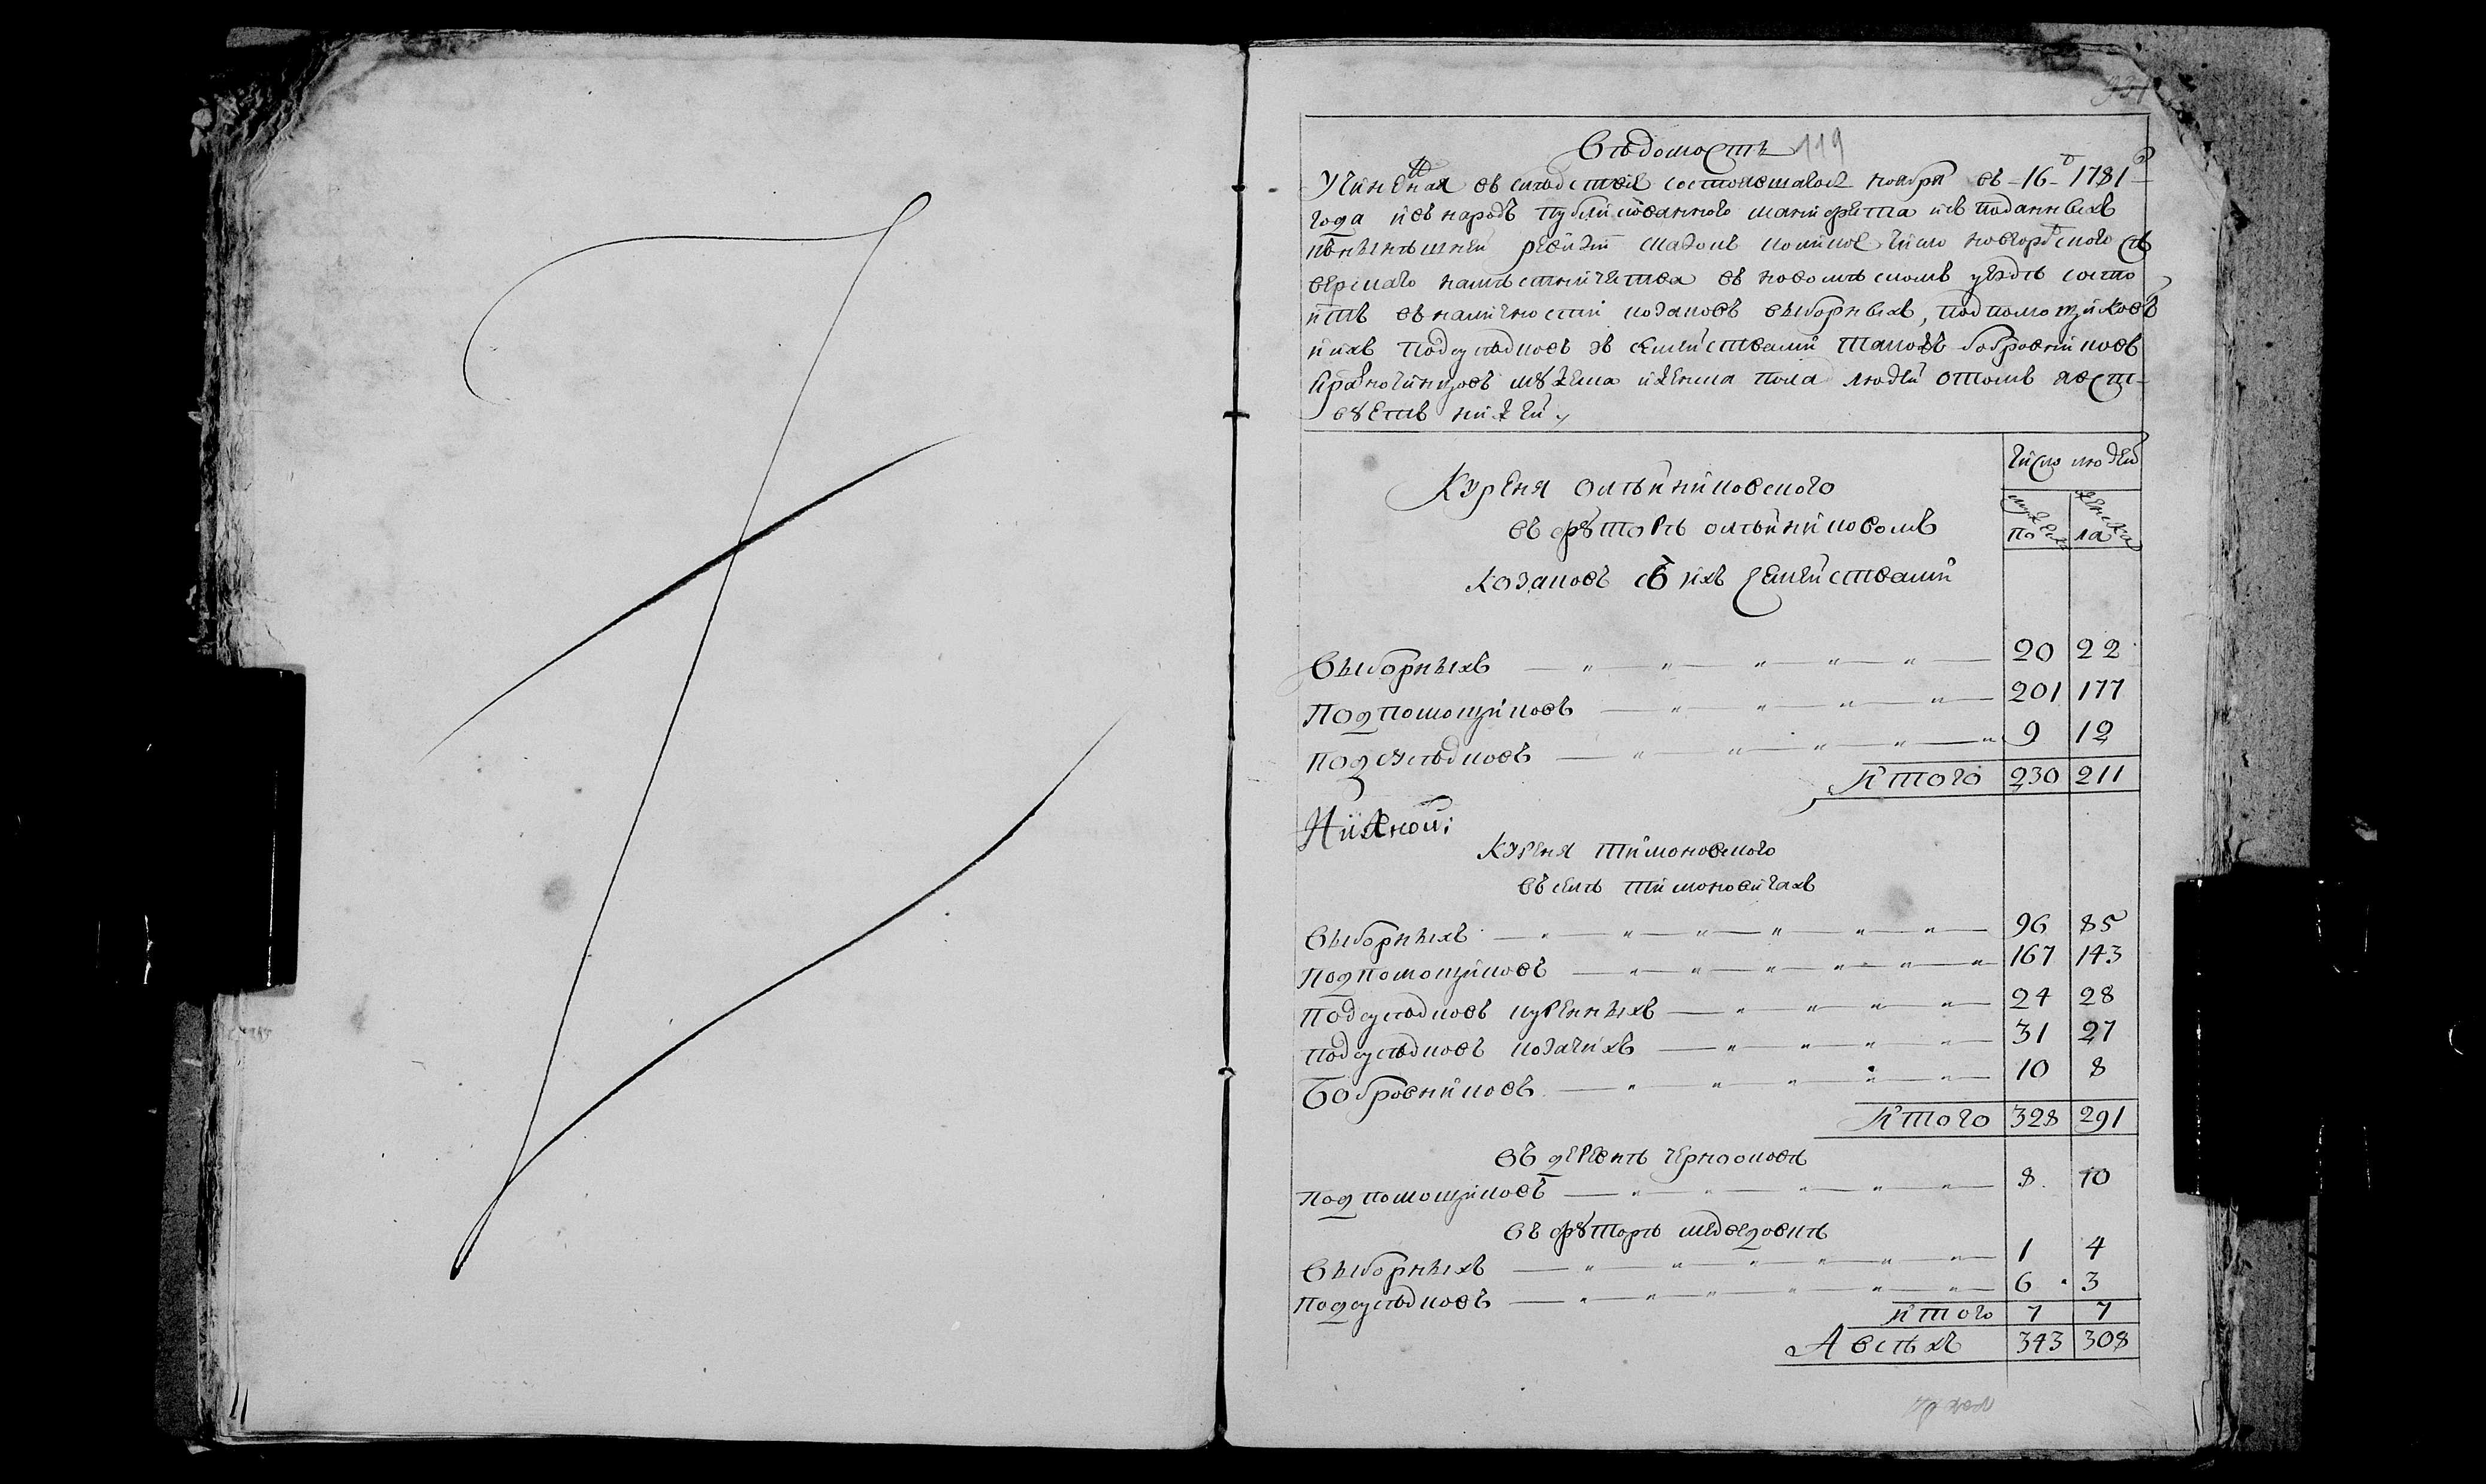 Вѣдомость 119
Учиненная въ слѣдствіе состоявшагось ноября въ 16 д 1781
года и въ народъ публикованного манифеста и въ поданныхъ
по нынѣшней ревизіи сказокъ коликое число новгородского сѣ
верскаго намѣстничества въ новомѣскомъ уѣздѣ состо
итъ въ наличности козаковъ выборныхъ, подпомощиковъ
и ихъ подсусѣдковъ зъ семействами такожъ бобровниковъ
мужеска и женска пола людей о томъ явст
вуетъ нижей
число людей
Куреня олѣйниковского
въ футорѣ олѣйниковомъ
козаковъ съ ихъ семействами
мужеска женска
по ла
Выборныхъ 20 22
Подпомощиковъ 201 177
Подсусѣдковъ 9 12
Итого 230 211
Нижной:
Куреня тимоновского
въ селѣ тимоновичахъ
Выборныхъ 96 85
Подпомощиковъ 167 143
Подсусѣдковъ куренныхъ 24 28
Подсусѣдковъ козачихъ 31 27
Бобровниковъ 10 8
Итого 328 291
въ деревнѣ чернооковѣ
Подпомощиковъ 8 10
въ футорѣ медведовкѣ
Выборныхъ 1 4
Подсусѣдковъ 6 3
Итого 7 7
А всѣхъ 343 308